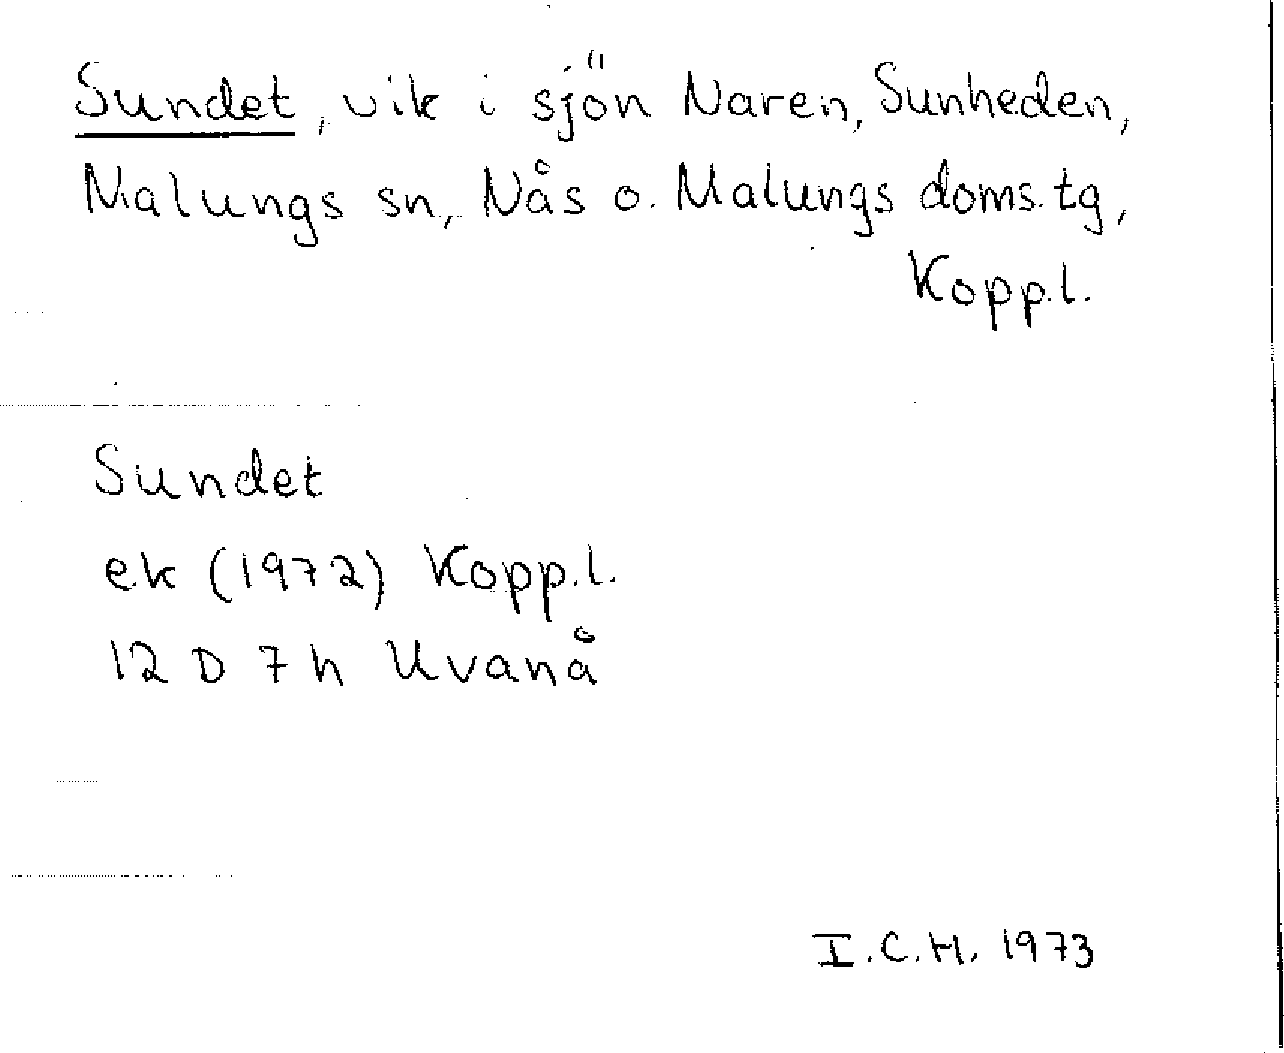 Sundet, vik i sjön Naren, Sunheden,
Malungs sn, Nås o. Malungs doms.tg,
Kopp.l.
Sundet
ek (1972) Kopp.l.
12 D 7 h Uvanå
I.C.H. 1973